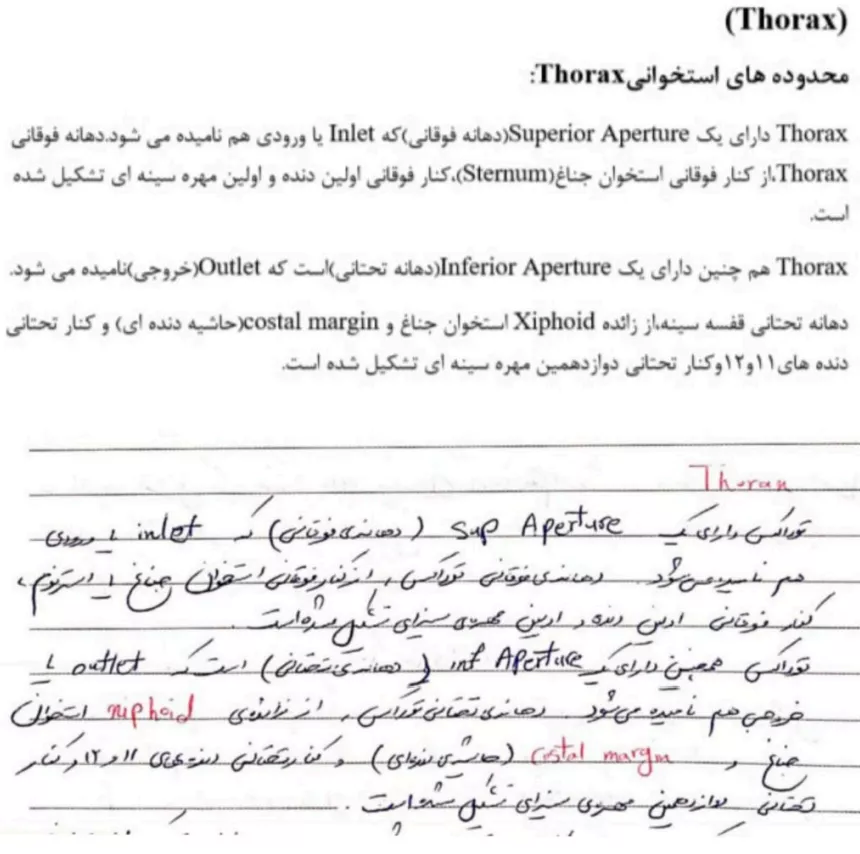 (Thorax)
محدوده های استخوانیThorax:
Thorax دارای یک Superior Aperture(دهانه فوقانی)که Inlet یا ورودی هم نامیده می شود.دهانه فوقانی
Thorax،از کنار فوقانی استخوان جناغ(Sternum)،کنار فوقانی اولین دنده و اولین مهره سینه ای تشکیل شده
است.
Thorax هم چنین دارای یک Inferior Aperture(دهانه تحتانی)است که Outlet(خروجی)نامیده می شود.
دهانه تحتانی قفسه سینه،از زائده Xiphoid استخوان جناغ و costal margin(حاشیه دنده ای) و کنار تحتانی
دنده های۱۱و۱۲وکنار تحتانی دوازدهمین مهره سینه ای تشکیل شده است.
Thorax
توراکس دارای یک Sup Aperture (دهانه‌ی فوقانی) که inlet یا ورودی
هم نامیده می‌شود. دهانه‌ی فوقانی توراکس، از کنار فوقانی استخوان جناغ یا استرنوم،
کنار فوقانی اولین دنده و اولین مهره‌ی سینه‌ای تشکیل شده است.
توراکس همچنین دارای یک inf Aperture (دهانه‌ی تحتانی) است که outlet یا
خروجی هم نامیده می‌شود. دهانه‌ی تحتانی توراکس، از زائده‌ی xiphoid استخوان
جناغ و Costal margin (حاشیه‌ی دنده‌ای) و کنار تحتانی دنده‌های ۱۱ و ۱۲ و کنار
تحتانی دوازدهمین مهره‌ی سینه‌ای تشکیل شده است.